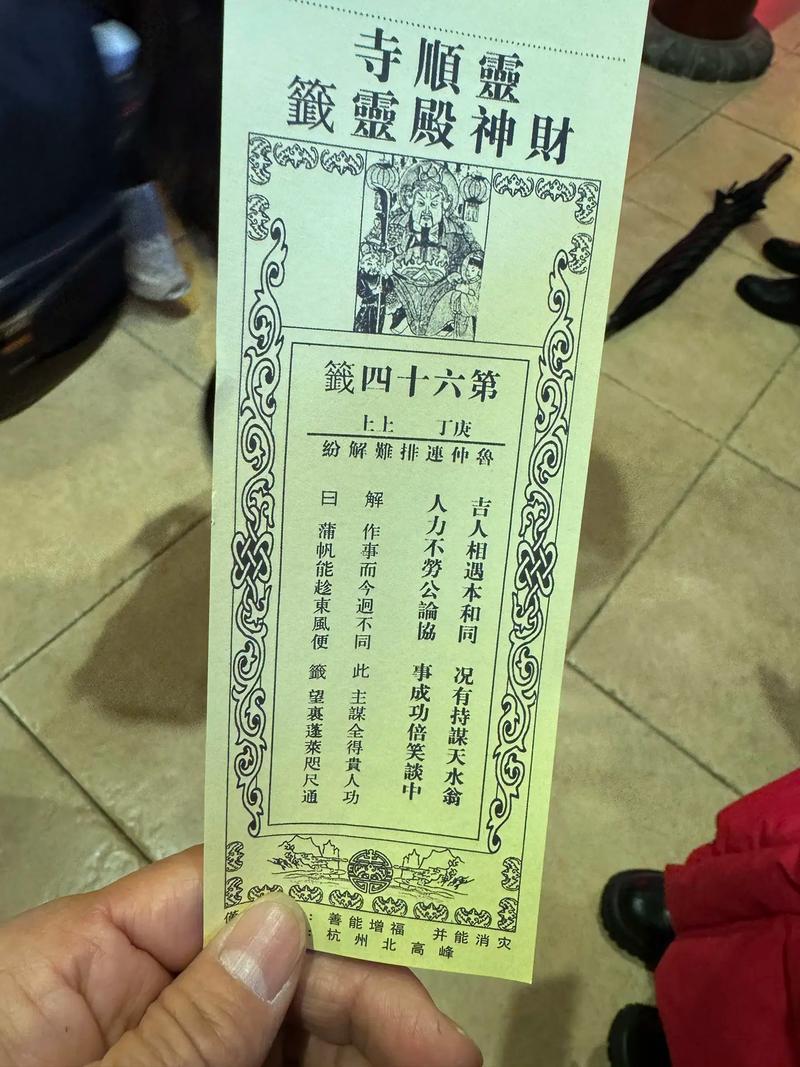 靈順寺
財神殿靈籤
第六十四籤
庚丁 上上
魯仲連排難解紛
吉人相遇本和同 况有持謀天水翁
人力不勞公論協 事成功倍笑談中
解 作事而今迥不同 此 主謀全得貴人功
曰 蒲帆能趁東風便 籤 望裏蓬萊咫尺通
：善能增福 并能消灾
：杭州北高峰